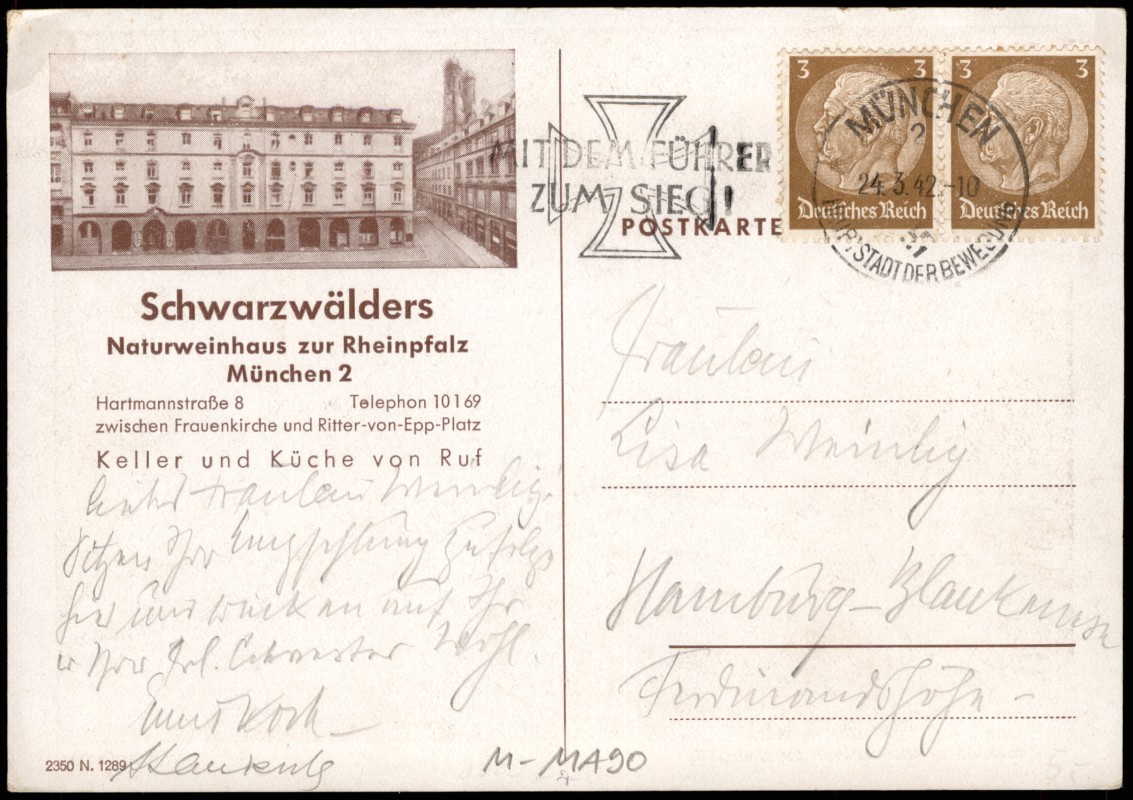 Schwarzwälders
Naturweinhaus zur Rheinpfalz
München 2
Hartmannstraße 8 Telephon 10169
zwischen Frauenkirche und Ritter-von-Epp-Platz
Keller und Küche von Ruf
Liebes Fräulein Weinlig!
Sitzen Ihrer Empfehlung zufolge
hier und trinken auf Ihr
u Ihrer Frl. Schwester Wohl.
Koch
2350 N. 1289
MIT DEM FÜHRER
ZUM SIEG!
POSTKARTE
3 3 3 3
Deutsches Reich Deutsches Reich
MÜNCHEN
2
24.3.42.-10
HAUPTSTADT DER BEWEGUNG
Fräulein
Lisa Weinlig
Hamburg-Blankenese
Ferdinandshöhe-
M-MA90